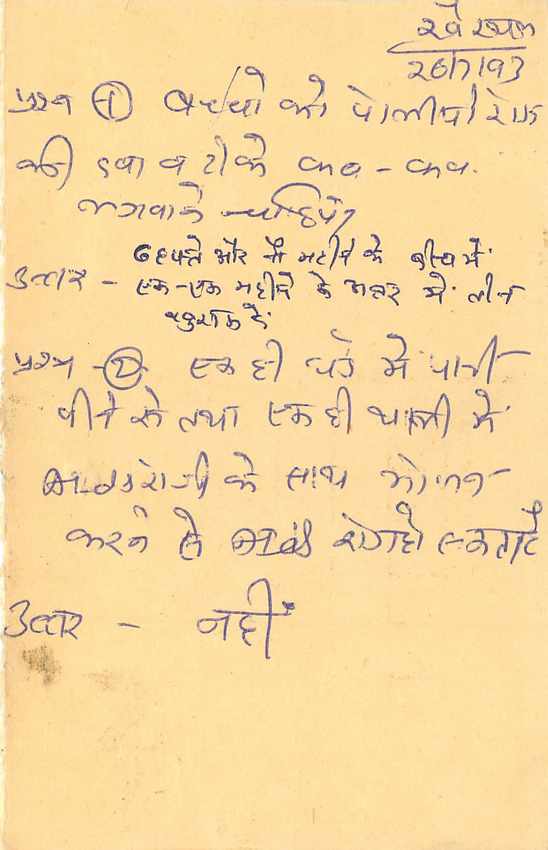 26/7/93
प्रश्न ① बच्चों को पोलियो रोग
की दवा व टीके कब - कब
लगवाने चाहिये
6 हफ्ते और नौ महीने के बीच में
उत्तर - एक-एक महीने के अन्तर में तीन
खुराक दें
प्रश्न - ② एक ही घड़े में पानी
पीने से तथा एक ही थाली में
के साथ भोजन
करने से रोग हो सकता है
उत्तर - नहीं